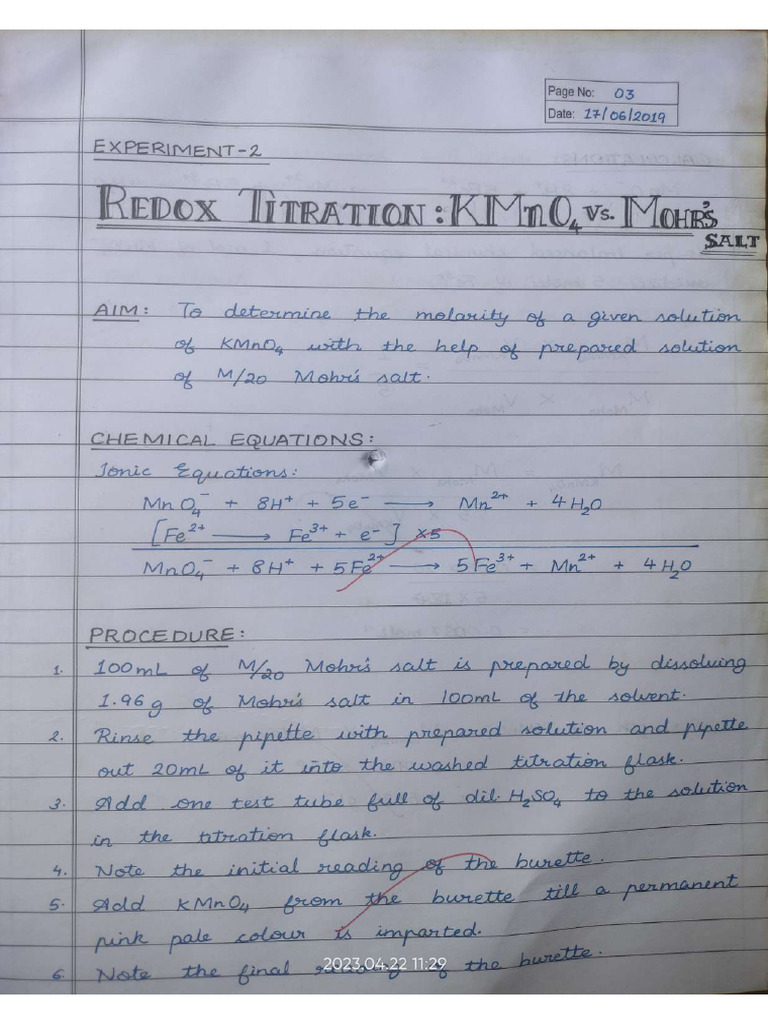 Page No: 03
Date: 17/06/2019
EXPERIMENT-2
REDOX TITRATION: KMnO₄ vs. MOHR'S
SALT
AIM: To determine the molarity of a given solution
of KMnO₄ with the help of prepared solution
of M/20 Mohr's salt.
CHEMICAL EQUATIONS:
Ionic Equations:
MnO₄⁻ + 8H⁺ + 5e⁻ → Mn²⁺ + 4H₂O
[Fe²⁺ → Fe³⁺ + e⁻] ×5
MnO₄⁻ + 8H⁺ + 5Fe²⁺ → 5Fe³⁺ + Mn²⁺ + 4H₂O
PROCEDURE:
1. 100mL of M/20 Mohr's salt is prepared by dissolving
1.96g of Mohr's salt in 100mL of the solvent.
2. Rinse the pipette with prepared solution and pipette
out 20mL of it into the washed titration flask.
3. Add one test tube full of dil. H₂SO₄ to the solution
in the titration flask.
4. Note the initial reading of the burette.
5. Add KMnO₄ from the burette till a permanent
pink pale colour is imparted.
6. Note the final reading of the burette.
2023.04.22 11:29